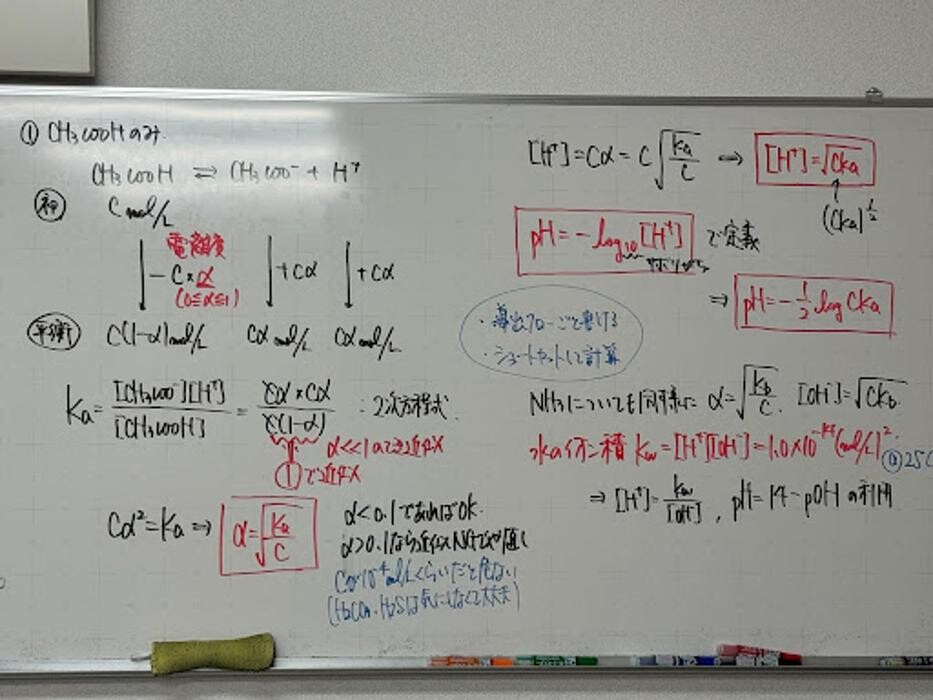 ① CH₃COOHのみ.
CH₃COOH ⇌ CH₃COO⁻ + H⁺
初 C mol/L
電離度
−C×α +Cα +Cα
(0≦α≦1)
平衡 C(1−α)mol/L Cα mol/L Cα mol/L
Ka = [CH₃COO⁻][H⁺] / [CH₃COOH] = Cα×Cα / C(1−α) : 2次方程式.
α<<1のとき近似
①で近似
Cα² = Ka ⇒ α = √(Ka/C)
α<0.1であればOK.
α>0.1なら近似NG
C=10⁻⁴mol/Lくらいだと危ない
(H₂CO₃, H₂Sは気にしなくて大丈夫)
[H⁺] = Cα = C√(Ka/C) ⇒ [H⁺] = √CKa
(CKa)^½
pH = −log₁₀[H⁺] で定義
⇒ pH = −½ log CKa
・導出フローごと書ける
・ショートカットして計算
NH₃についても同様に α = √(Kb/C). [OH⁻] = √CKb.
水のイオン積 Kw = [H⁺][OH⁻] = 1.0×10⁻¹⁴(mol/L)².
25
⇒ [H⁺] = Kw/[OH⁻], pH = 14 − pOH の利用